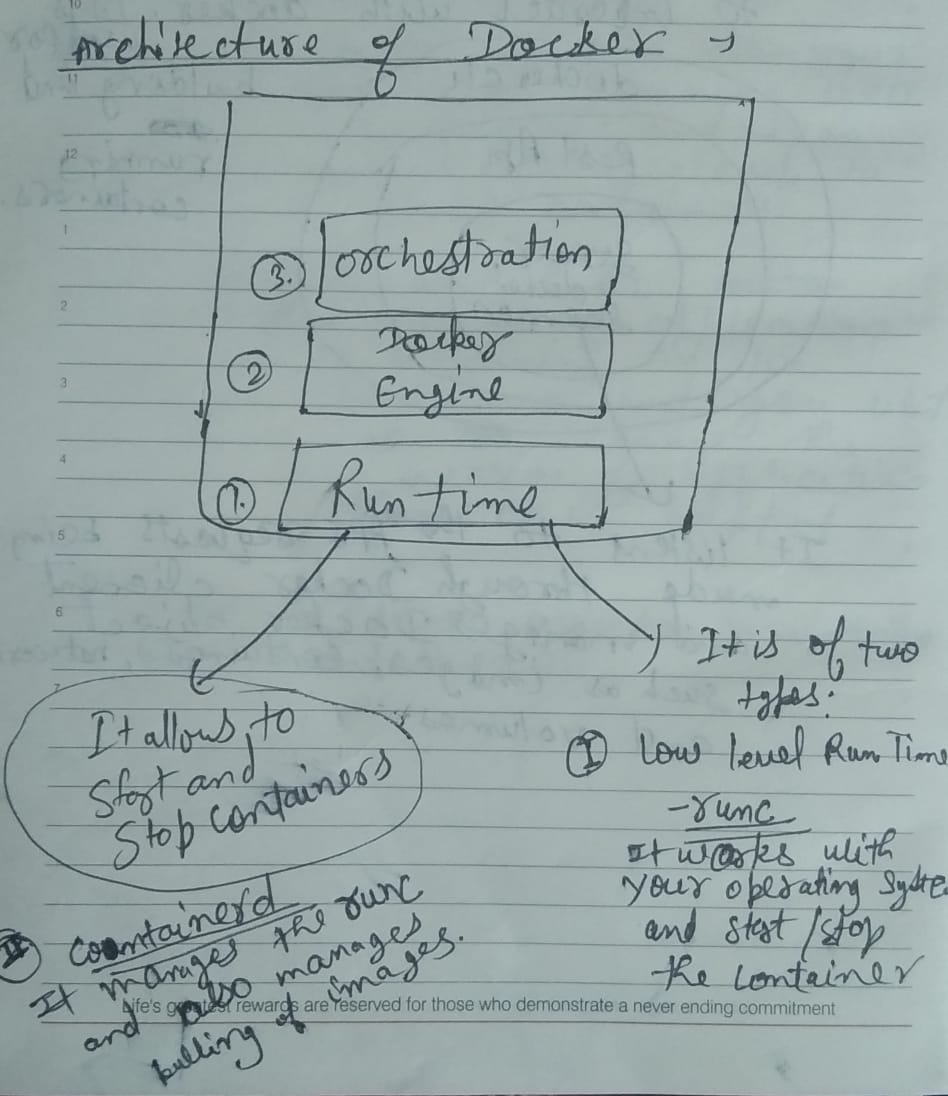 10
Architecture of Docker →
11
12
1
③. orchestration
2
② Docker
Engine
3
4
①. Run time
5
6
7
It is of two
types:
It allows to
Start and
Stop Containers
Ⓘ Low level Run Time
-runc
It works with
your operating Syste
and start/stop
the Container
II Containerd
It manages the runc
and also manages
pulling of images.
Life's greatest rewards are reserved for those who demonstrate a never ending commitment